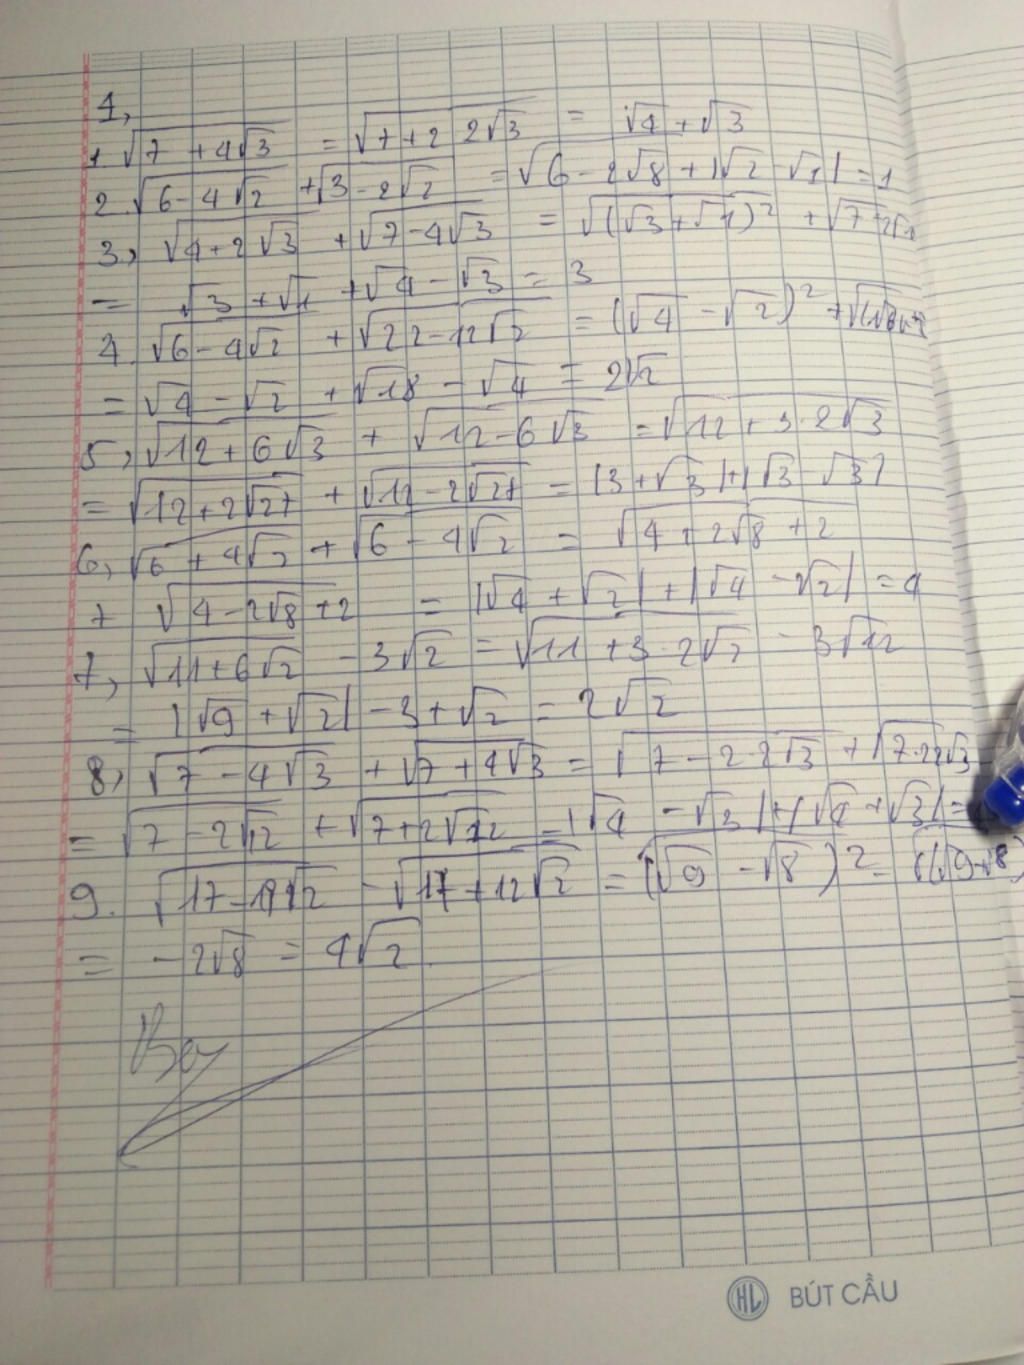 1,
1 √7 + 4√3 = √7 + 2 2√3 = √4 + √3
2. √6 - 4√2 + √3 - 2√2 = √6 - 2√8 + |√2 - √1| = 1
3, √4 + 2√3 + √7 - 4√3 = √(√3 + √1)² + √7
= √3 + √1 + √4 - √3 = 3
4. √6 - 4√2 + √22 - 12√2 = (√4 - √2)² +
= √4 - √2 + √18 - √4 = 2√2
5, √12 + 6√3 + √12 - 6√3 = √12 + 3.2√3
= √12 + 2√27 + √12 - 2√27 = |3 + √3| + |√3 - √3|
6, √6 + 4√2 + √6 - 4√2 = √4 + 2√8 + 2
+ √4 - 2√8 + 2 = |√4 + √2| + |√4 - √2| = 4
7, √11 + 6√2 - 3√2 = √11 + 3.2√2 - 3√12
= |√9 + √2| - 3 + √2 = 2√2
8, √7 - 4√3 + √7 + 4√3 = √7 - 2.2√3 + √7.22√3
= √7 - 2√12 + √7 + 2√12 = |√4 - √3| + |√4 + √3| =
9. √17 - √2 - √17 + 12√2 = (√9 - √8)² - (√9+√8)
= - 2√8 = 4√2.
HL BÚT CẦU